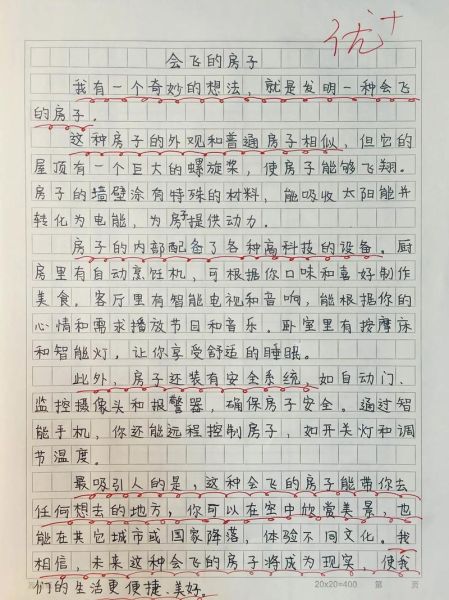 优+
会飞的房子
我有一个奇妙的想法，就是发明一种会飞
的房子。
这种房子的外观和普通房子相似，但它的
屋顶有一个巨大的螺旋桨，使房子能够飞翔。
房子的墙壁涂有特殊的材料，能吸收太阳能并
转化为电能，为房子提供动力。
房子的内部配备了各种高科技的设备。厨
房里有自动烹饪机，可根据你口味和喜好制作
美食。客厅里有智能电视和音响，能根据你的
心情和需求播放节目和音乐。卧室里有按摩床
和智能灯，让你享受舒适的睡眠。
此外，房子还装有安全系统，如自动门、
监控摄像头和报警器，确保房子安全。通过智
能手机，你还能远程控制房子，如开关灯和调
节温度。
最吸引人的是，这种会飞的房子能带你去
任何想去的地方，你可以在空中欣赏美景，也
能在其它城市或国家降落，体验不同文化。我
相信，未来这种会飞的房子将成为现实，使我
们的生活更便捷、美好。
20x20=400 第 页